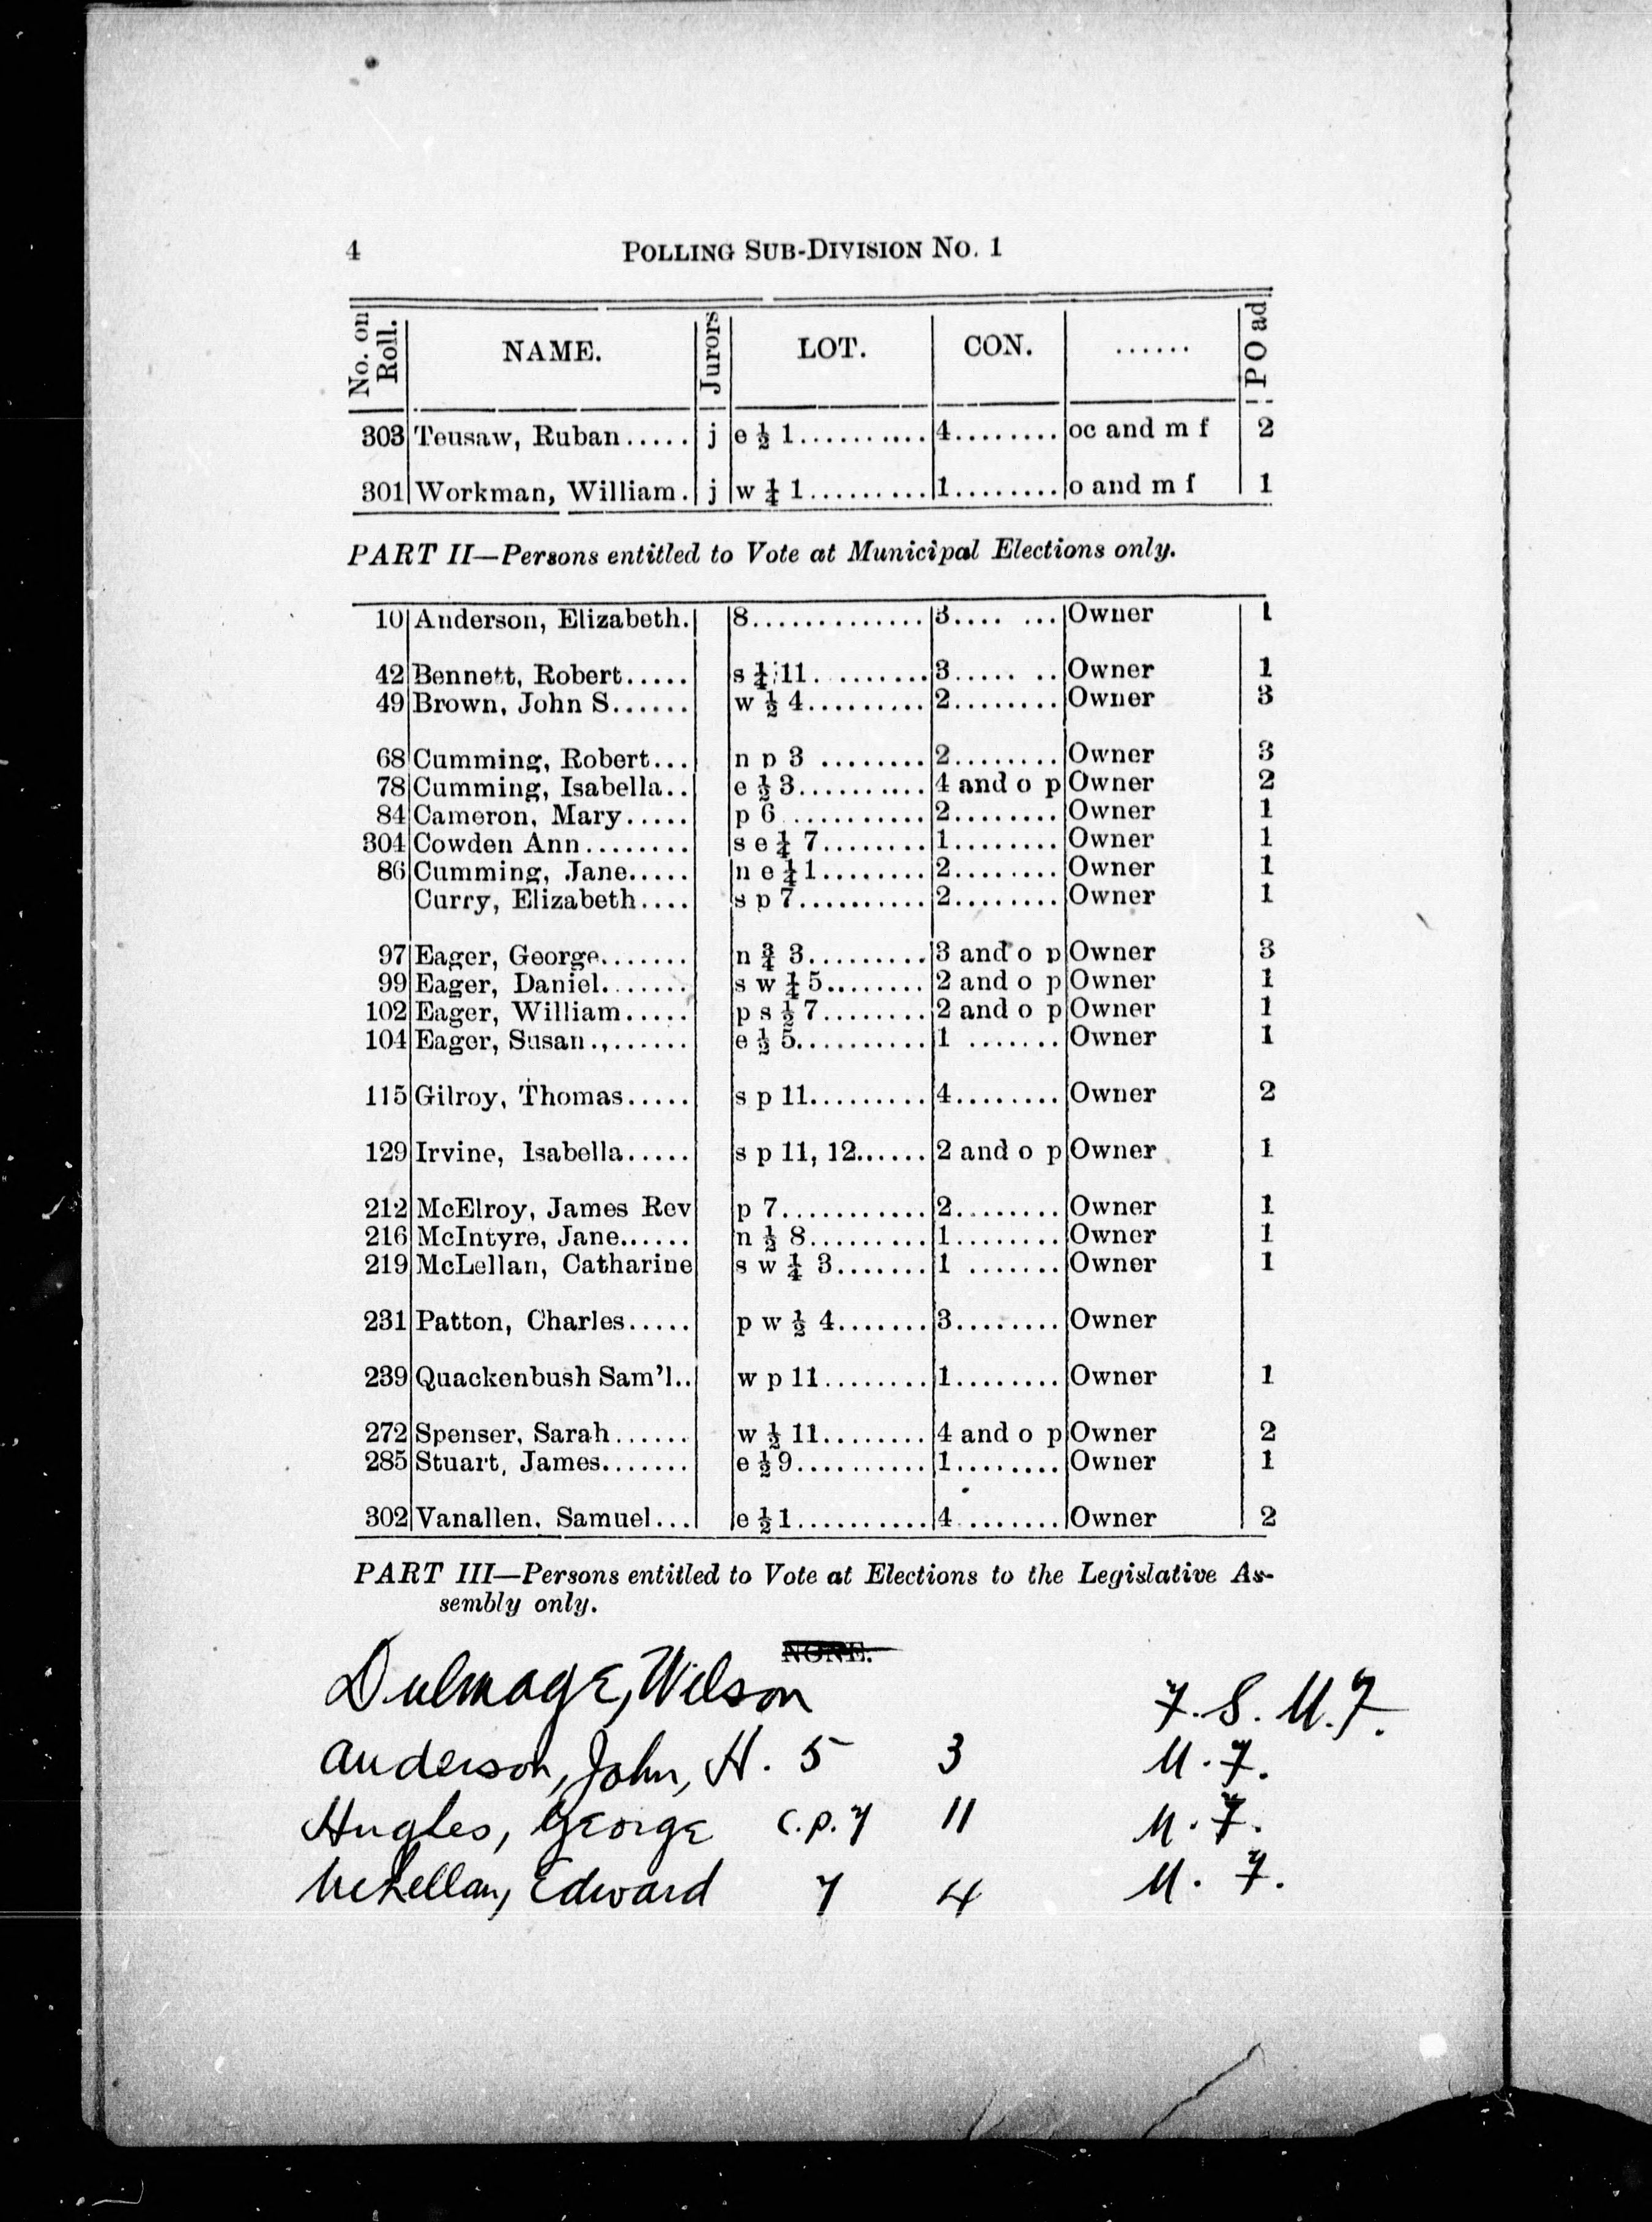 4 POLLING SUB-DIVISION No. 1
No. on Roll. NAME. Jurors LOT. CON. ...... P O ad
303 Teusaw, Ruban..... j e ½ 1.......... 4........ oc and m f 2
301 Workman, William. j w ¼ 1......... 1........ o and m f 1
PART II—Persons entitled to Vote at Municipal Elections only.
10 Anderson, Elizabeth. 8............. 3.... ... Owner 1
42 Bennett, Robert..... s ¼ 11......... 3..... .. Owner 1
49 Brown, John S...... w ½ 4......... 2........ Owner 3
68 Cumming, Robert... n p 3 ........ 2........ Owner 3
78 Cumming, Isabella.. e ½ 3.......... 4 and o p Owner 2
84 Cameron, Mary..... p 6 ........... 2........ Owner 1
304 Cowden Ann........ s e ¼ 7........ 1........ Owner 1
86 Cumming, Jane..... n e ¼ 1........ 2........ Owner 1
Curry, Elizabeth.... s p 7.......... 2........ Owner 1
97 Eager, George....... n ¾ 3......... 3 and o p Owner 3
99 Eager, Daniel....... s w ¼ 5........ 2 and o p Owner 1
102 Eager, William..... p s ½ 7........ 2 and o p Owner 1
104 Eager, Susan.,...... e ½ 5.......... 1 ....... Owner 1
115 Gilroy, Thomas..... s p 11......... 4........ Owner 2
129 Irvine, Isabella..... s p 11, 12...... 2 and o p Owner 1
212 McElroy, James Rev p 7........... 2........ Owner 1
216 McIntyre, Jane...... n ½ 8......... 1........ Owner 1
219 McLellan, Catharine s w ¼ 3....... 1 ....... Owner 1
231 Patton, Charles..... p w ½ 4....... 3........ Owner
239 Quackenbush Sam'l.. w p 11........ 1........ Owner 1
272 Spenser, Sarah...... w ½ 11........ 4 and o p Owner 2
285 Stuart, James....... e ½ 9.......... 1........ Owner 1
302 Vanallen, Samuel... e ½ 1.......... 4 ....... Owner 2
PART III—Persons entitled to Vote at Elections to the Legislative As-
sembly only.
NONE.
Dulmage, Wilson F. S. M.F.
Anderson, John, H. 5 3 M.F.
Hughes, George c.p. 7 11 M.F.
McLellan, Edward 7 4 M.F.